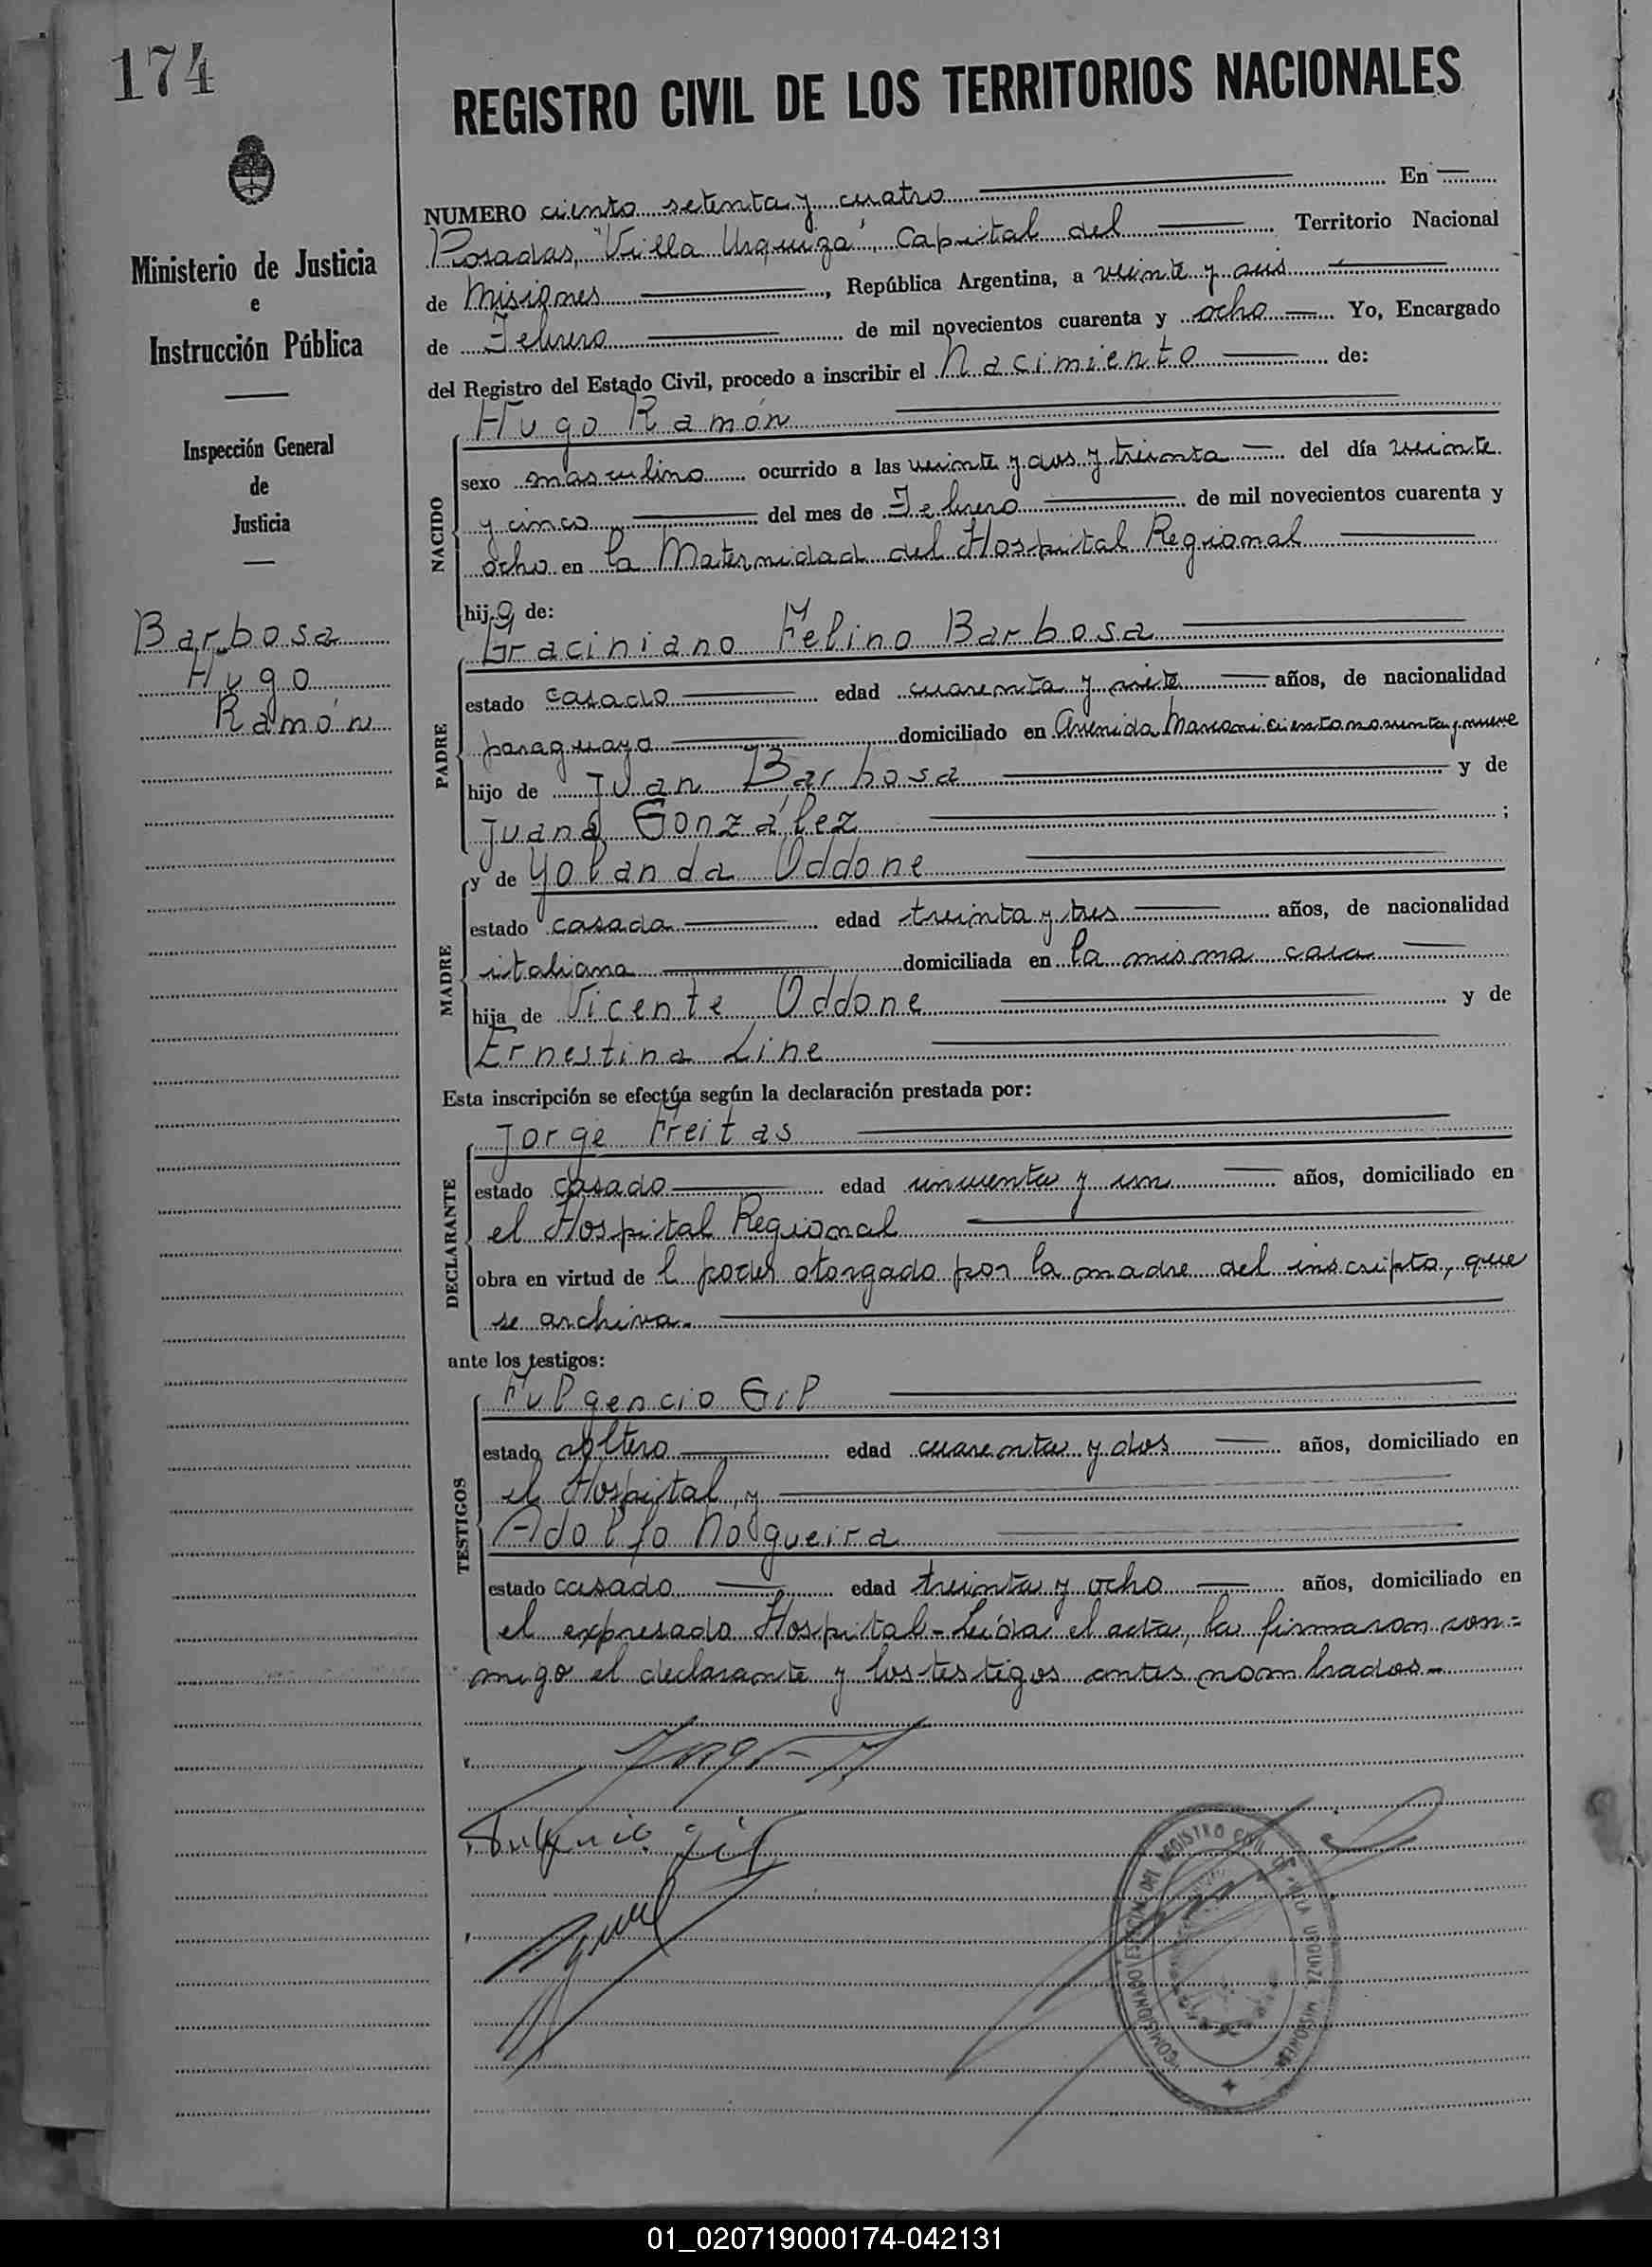 174
REGISTRO CIVIL DE LOS TERRITORIOS NACIONALES
Ministerio de Justicia
e
Instrucción Pública
Inspección General
de
Justicia
Barbosa
Hugo
Ramón
NUMERO ciento setenta y cuatro En
Posadas, "Villa Urquiza", Capital del Territorio Nacional
de Misiones, República Argentina, a veinte y seis
de Febrero de mil novecientos cuarenta y ocho Yo, Encargado
del Registro del Estado Civil, procedo a inscribir el Nacimiento de:
NACIDO
Hugo Ramón
sexo masculino ocurrido a las veinte y dos y treinta del día veinte
y cinco del mes de Febrero de mil novecientos cuarenta y
ocho en la Maternidad del Hospital Regional
hijo de:
PADRE
Graciniano Felino Barbosa
estado casado edad cuarenta y siete años, de nacionalidad
paraguaya domiciliado en Avenida Marconi ciento noventa y nueve
hijo de Juan Barbosa y de
Juana González ;
MADRE
y de Yolanda Oddone
estado casada edad treinta y tres años, de nacionalidad
italiana domiciliada en la misma casa
hija de Vicente Oddone y de
Ernestina Line
Esta inscripción se efectúa según la declaración prestada por:
DECLARANTE
Jorge Freitas
estado casado edad cincuenta y un años, domiciliado en
el Hospital Regional
obra en virtud de l poder otorgado por la madre del inscripto, que
se archiva.
ante los testigos:
TESTIGOS
Fulgencio Gil
estado soltero edad cuarenta y dos años, domiciliado en
el Hospital, y
Adolfo Nolgueira
estado casado edad treinta y ocho años, domiciliado en
el expresado Hospital - Leída el acta, la firmaron con=
migo el declarante y los testigos antes nombrados.-
Fulgencio Gil
COMISIONADO ESPECIAL DEL REGISTRO CIVIL DE VILLA URQUIZA MISIONES
01_020719000174-042131